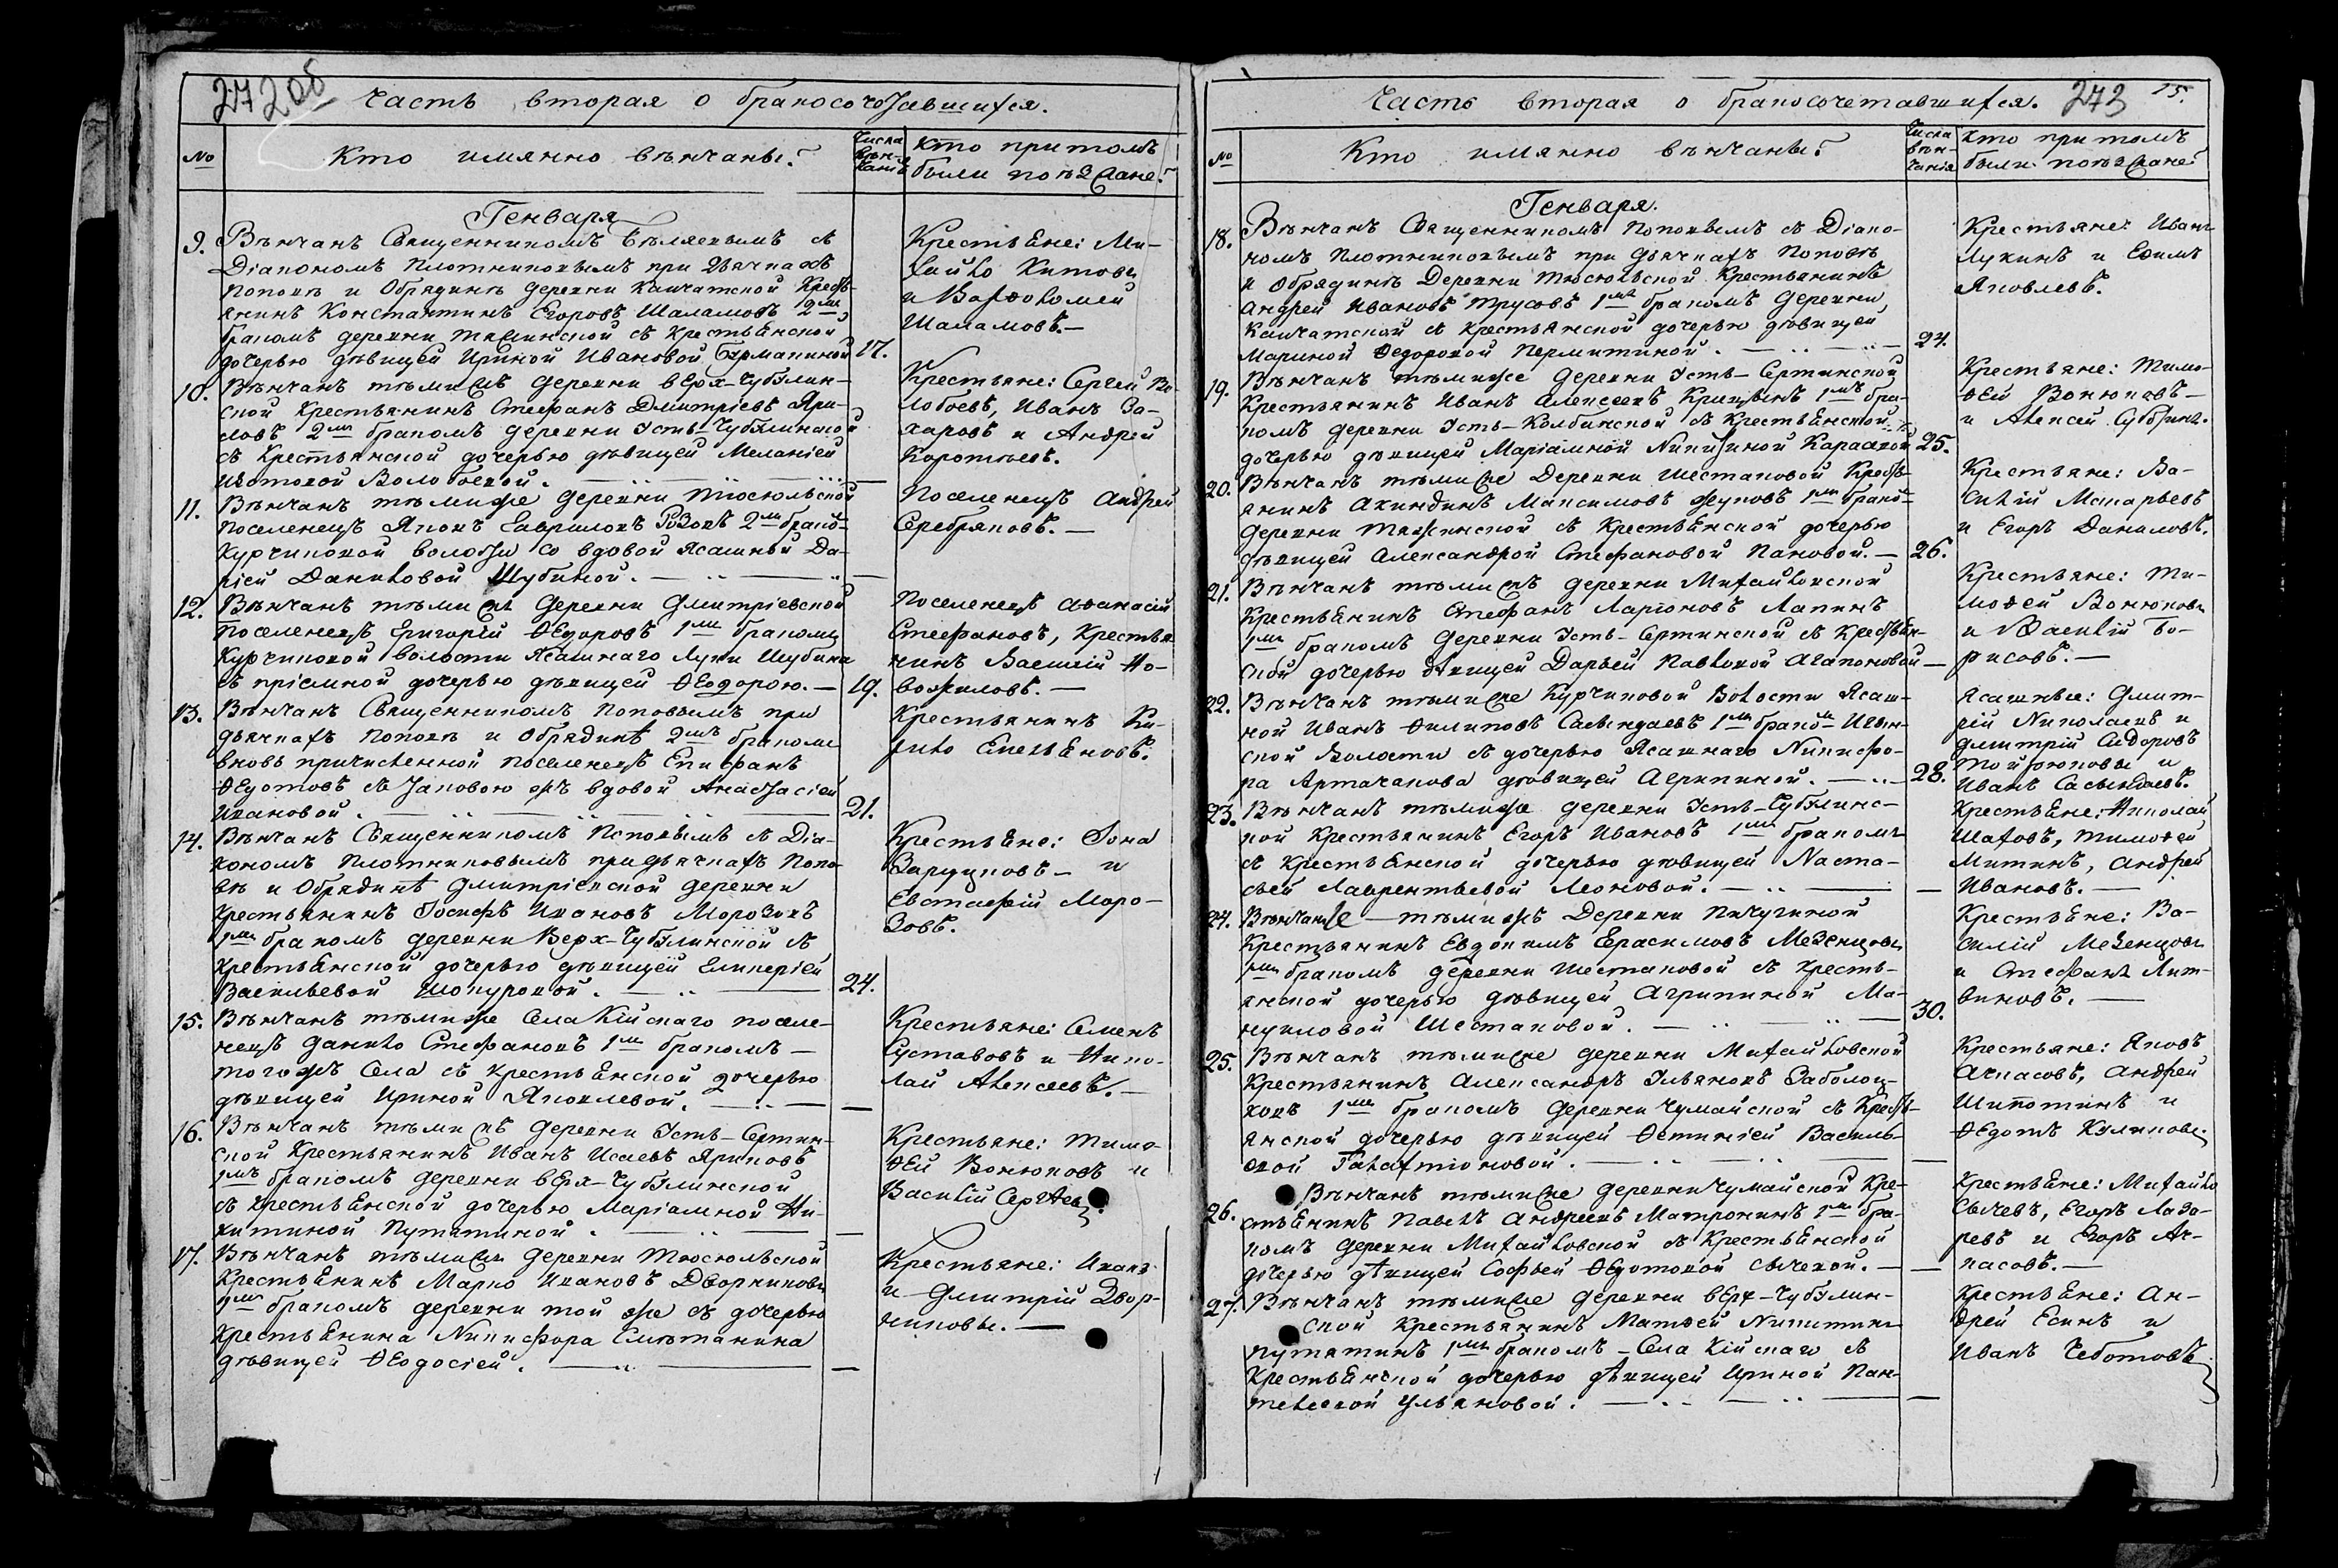 272об
Часть вторая о бракосочетавшихся.
№
Кто имянно венчаны?
Числа вѣн-чанія
Кто при томъ были поѣзжане?
Генваря
9. Вѣнчанъ Священникомъ Бѣляевымъ съ
Діакономъ Плотниковымъ при дьячкахъ
Поповѣ и Обрядинѣ деревни Камчатской Кресть-
янинъ Константинъ Егоровъ Шаламовъ 2мъ
бракомъ деревни Тяжинской съ крестьянской
дочерью дѣвицей Ириной Ивановой Бурмакиной 17.
Крестьяне: Ми-
хайло Китовъ
и Варѳоломей
Шаламовъ.—
10. Вѣнчанъ тѣмижъ деревни верх-Чубулин-
ской Крестьянинъ Стефанъ Дмитріевъ Яри-
ковъ 2мъ бракомъ деревни Усть-Чубулинской
съ Крестьянской дочерью дѣвицей Меланіей
Изотовой Волобоевой. —
Крестьяне: Сергей Во-
лобоевъ, Иванъ За-
харовъ и Андрей
Коротаевъ.
11. Вѣнчанъ тѣмиже деревни Тюсюльской
поселенецъ Яковъ Гавриловъ Розовъ 2мъ брако-
Курчиковой волости со вдовой Ясашной Да-
ріей Даниловой Шубиной. —
Поселенецъ Андрей
Серебряковъ. —
12. Вѣнчанъ тѣмижъ деревни Дмитріевской
поселенецъ Григорій Ѳедоровъ 1мъ бракомъ
Курчиковой волости Ясашнаго Луки Шубина
съ пріемной дочерью дѣвицей Ѳеодорою. — 19.
Поселенецъ Аѳанасій
Стефановъ, Крестья
нинъ Василій Но-
вожиловъ. —
13. Вѣнчанъ Священникомъ Поповымъ при
дьячкахъ Поповѣ и Обрядинѣ 2мъ бракомъ
вновь причисленной поселенецъ Епифанъ
Ѳедотовъ съ таковою жъ вдовой Анастасіей
Ивановой. — 21.
Крестьянинъ Ки-
рило Емельяновъ.
14. Вѣнчанъ Священникомъ Поповымъ съ Діа-
кономъ Плотниковымъ при дьячкахъ Попо-
вѣ и Обрядинѣ Дмитріевской деревни
Крестьянинъ Іосифъ Ивановъ Морозовъ
1мъ бракомъ деревни Верх-Чубулинской съ
крестьянской дочерью дѣвицей Еликерiей
Васильевой Шокуровой. — 24.
Крестьяне: Іона
Заруцковъ — и
Евстафій Моро-
зовъ.
15. Вѣнчанъ тѣмиже Села Кійскаго поселе-
нецъ Данило Стефановъ 1мъ бракомъ —
тогожъ Села съ крестьянской дочерью
дѣвицей Ириной Яковлевой. —
Крестьяне: Семенъ
Суставовъ и Нико-
лай Алексеевъ. —
16. Вѣнчанъ тѣмижъ деревни Усть-Сертин-
ской Крестьянинъ Иванъ Исаевъ Яриковъ
1мъ бракомъ деревни верх-Чубулинской
съ крестьянской дочерью Маріамной Ни-
китиной Путятиной. —
Крестьяне: Тимо-
ѳей Вонюковъ и
Василій Сергѣевъ.
17. Вѣнчанъ тѣмижъ деревни Тюсюльской
Крестьянинъ Марко Ивановъ Дворниковъ
1мъ бракомъ деревни той же съ дочерью
крестьянина Никифора Сметанина
дѣвицей Ѳеодосіей. —
Крестьяне: Иванъ
и Дмитрій Двор-
никовы. —
Часть вторая о бракосочетавшихся. 273 15.
№
Кто имянно вѣнчаны?
Числа вѣн-чанія
Кто при томъ были поѣзжане?
Генваря.
18. Вѣнчанъ Священникомъ Поповымъ съ Діако-
номъ Плотниковымъ при дьячкахъ Поповѣ
и Обрядинѣ Деревни Тюсюльской Крестьянинъ
Андрей Ивановъ Трусовъ 1мъ бракомъ деревни
Камчатской съ крестьянской дочерью дѣвицей
Мариной Ѳедоровой Пермитиной. — 24.
Крестьяне: Иванъ
Лукинъ и Ефимъ
Яковлевъ.
19. Вѣнчанъ тѣмиже деревни Усть-Сертинской
Крестьянинъ Иванъ Алексеевъ Кривцынъ 1мъ бра-
комъ деревни Усть-Колбинской съ Крестьянской
дочерью дѣвицей Маріамной Никитиной Карасевой 25.
Крестьяне: Тимо-
ѳей Вонюковъ —
и Алексей Субринъ.
20. Вѣнчанъ тѣмиже Деревни Шестаковой Кресть-
янинъ Акиндинъ Максимовъ Жуковъ 1мъ брако-
деревни Тяжинской съ Крестьянской дочерью
дѣвицей Александрой Стефановой Пановой. — 26.
Крестьяне: Ва-
силій Макарьевъ
и Егоръ Даниловъ.
21. Вѣнчанъ тѣмижъ деревни Михайловской
Крестьянинъ Стефанъ Ларіоновъ Лапинъ
1мъ бракомъ деревни Усть-Сертинской съ Крестьян-
ской дочерью дѣвицей Дарьей Павловой Агапоновой —
Крестьяне: Ти-
моѳей Вонюковъ
и Василій Бо-
рисовъ. —
22. Вѣнчанъ тѣмиже Курчиковой Волости Ясаш-
ной Иванъ Филиповъ Сасындаевъ 1мъ бракомъ Ивын-
ской Волости съ дочерью Ясашнаго Никифо-
ра Артачакова дѣвицей Агрипиной. — 28.
Ясашные: Дмит-
рей Николаевъ и
Дмитрій Сидоровъ
Тойзюковы и
Иванъ Сасындаевъ.
23. Вѣнчанъ тѣмиже деревни Усть-Чубулинс-
кой Крестьянинъ Егоръ Ивановъ 1мъ бракомъ
съ Крестьянской дочерью дѣвицей Наста-
сьей Лаврентьевой Леоновой. —
Крестьяне: Николай
Шаховъ, Тимоѳей
Митинъ, Андрей
Ивановъ. —
24. Вѣнчанже — тѣмижъ Деревни Пичугиной
Крестьянинъ Евдокимъ Герасимовъ Мезенцовъ
1мъ бракомъ деревни Шестаковой съ Кресть-
янской дочерью дѣвицей Агрипиной Ма-
нуиловой Шестаковой. — 30.
Крестьяне: Ва-
силій Мезенцовъ
и Стефанъ Лит-
виновъ. —
25. Вѣнчанъ тѣмиже деревни Михайловской
Крестьянинъ Александръ Ульяновъ Заболоц-
ковъ 1мъ бракомъ деревни Чумайской съ Кресть-
янской дочерью дѣвицей Ѳетиніей Василь-
евой Галахтионовой. —
Крестьяне: Яковъ
Ачкасовъ, Андрей
Шипотинъ и
Ѳедотъ Куликовъ.
26. Вѣнчанъ тѣмиже деревни Чумайской Кре-
стьянинъ Павелъ Андреевъ Матронинъ 1мъ бра-
комъ деревни Михайловской съ Крестьянской
дочерью дѣвицей Софьей Ѳедотовой Сычевой. —
Крестьяне: Михайло
Сычевъ, Егоръ Лаза-
ревъ и Егоръ Ач-
касовъ. —
27. Вѣнчанъ тѣмиже деревни верх-Чубулин-
ской Крестьянинъ Матѳей Никитинъ
Путятинъ 1мъ бракомъ — Села Кійскаго съ
Крестьянской дочерью дѣвицей Ириной Пан-
телеевой Ульяновой. —
Крестьяне: Ан-
дрей Есинъ и
Иванъ Чеботовъ.